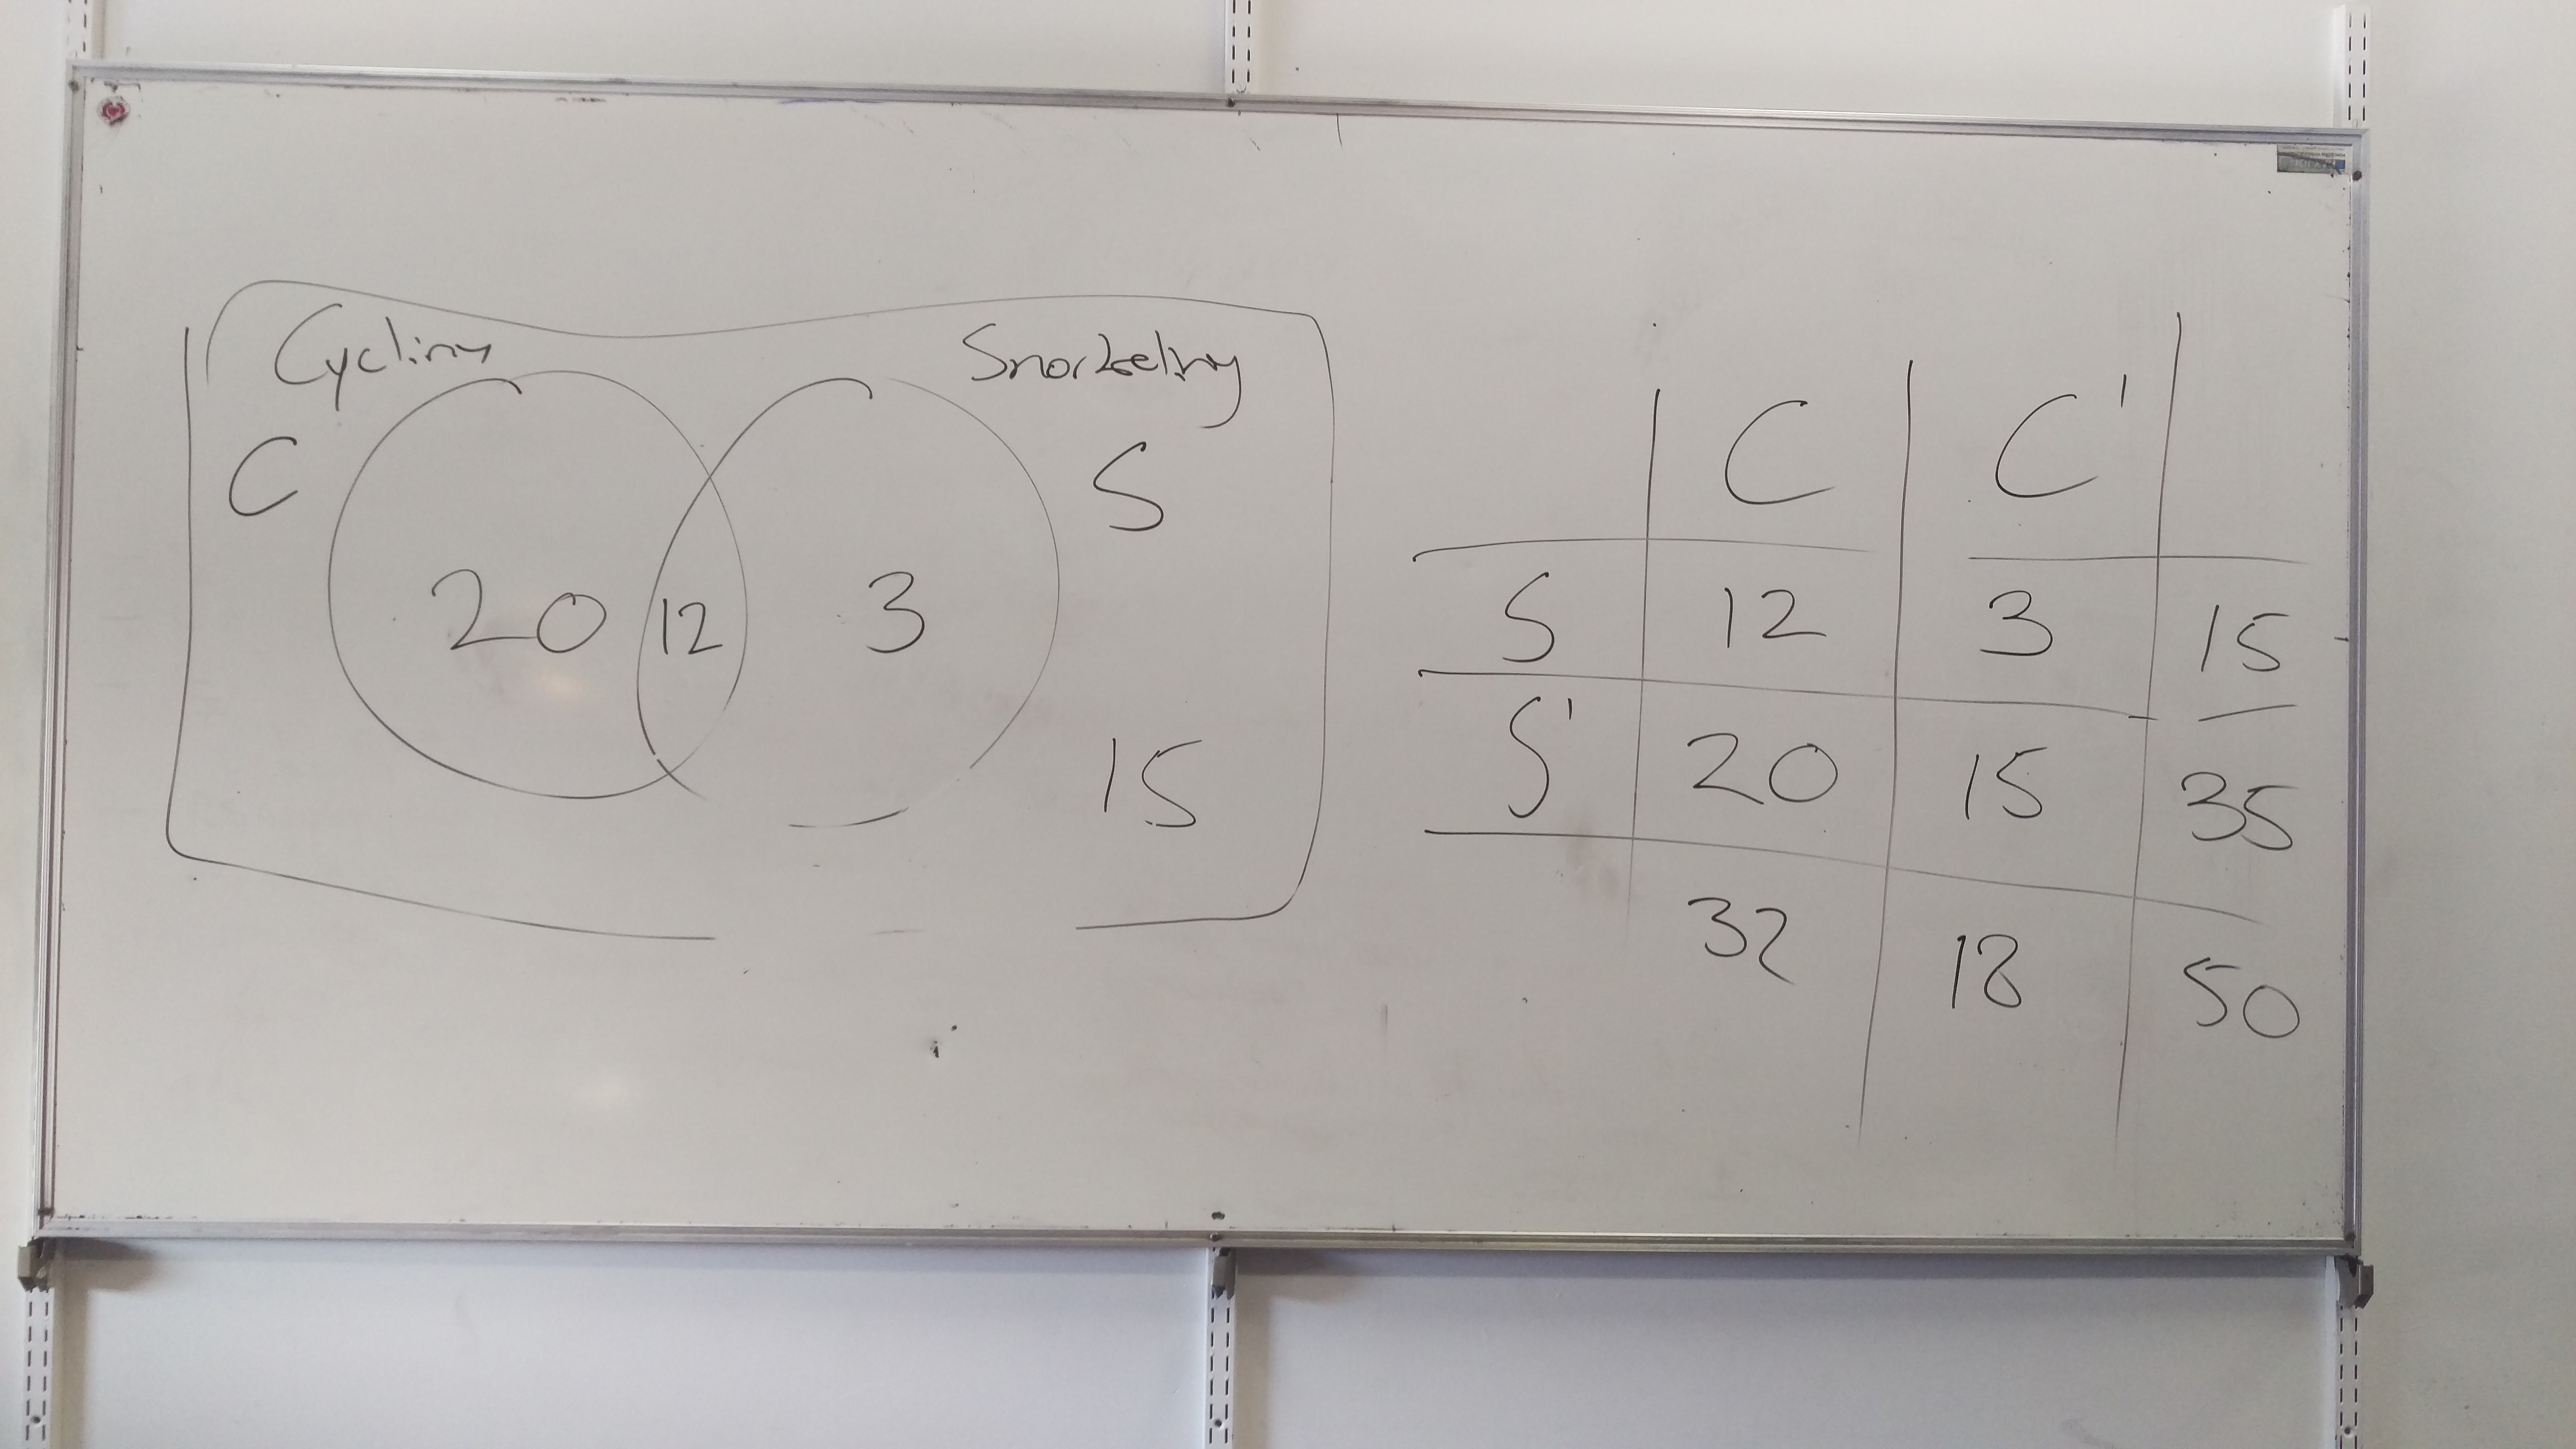 Cycling
Snorkeling
C
S
20 12 3
15
C C'
S 12 3 15
S' 20 15 35
32 18 50